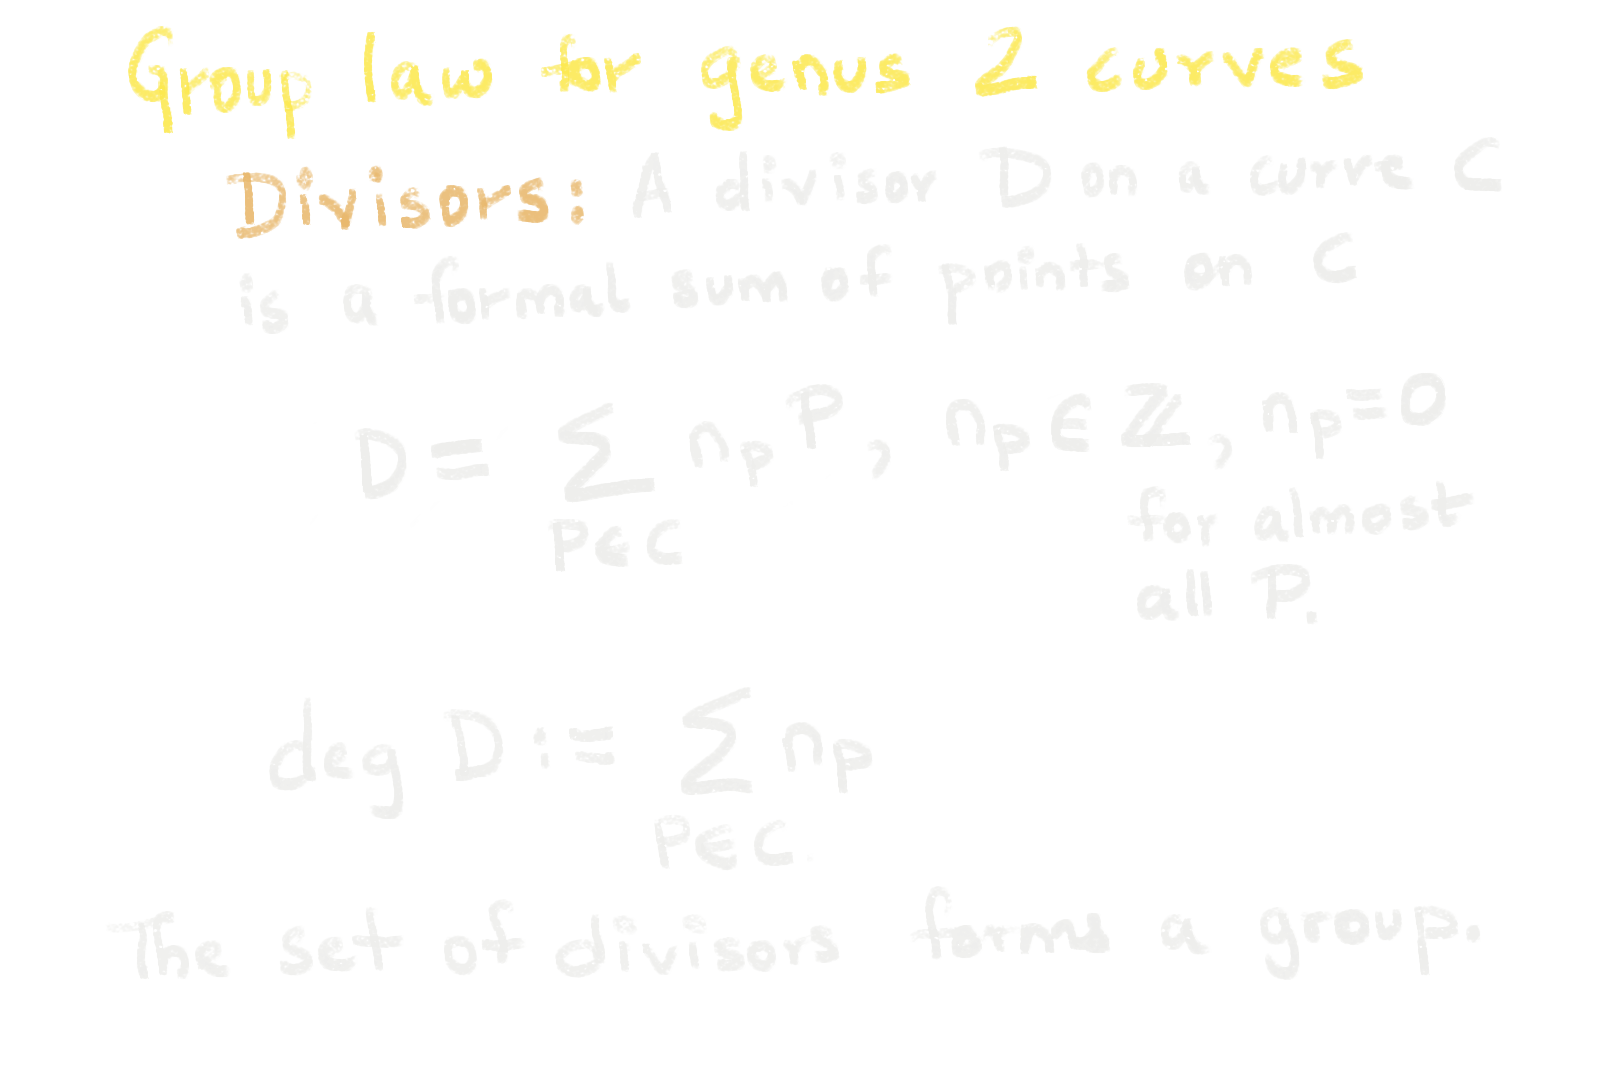 Group law for genus 2 curves
Divisors: A divisor D on a curve C
is a formal sum of points on C
D = ∑ n_P P, n_P ∈ ℤ, n_P = 0
P∈C
for almost
all P.
deg D := ∑ n_P
P∈C
The set of divisors forms a group.